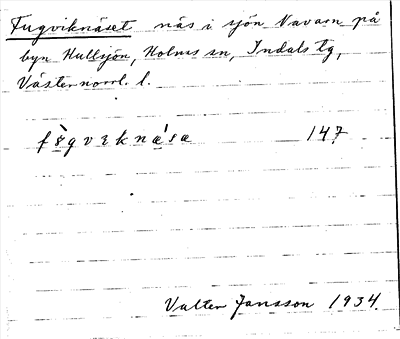 Fugviknäset näs i sjön Navarn på
byn Hullsjön, Holms sn, Indals tg,
Västernorrl. l.
147
Valter Jansson 1934.